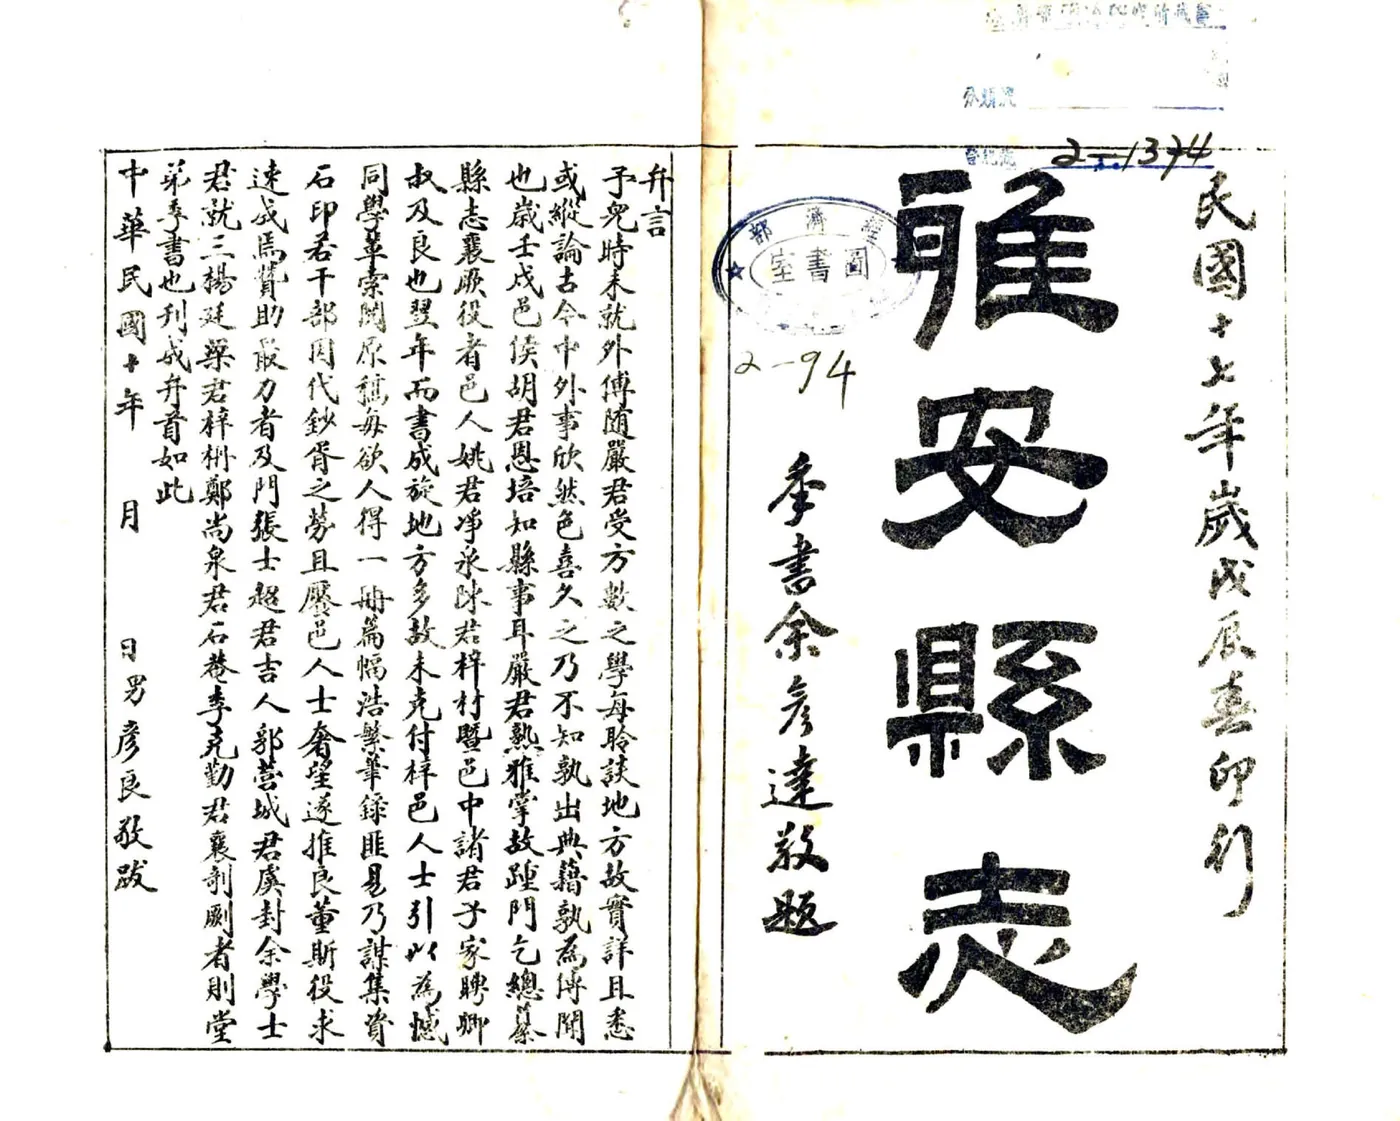 民國十七年歲戊辰春印行
雅安縣志
季書余彥達敬題
經濟部
圖書室
分類號
登記號
2-1374
2-94
弁言
予兒時未就外傅随嚴君受方數之學每聆談地方故實詳且悉
或縱論古今中外事欣然色喜久之乃不知孰出典籍孰為傳聞
也歲壬戌邑侯胡君恩培知縣事耳嚴君熟雅掌故踵門乞總纂
縣志襄厥役者邑人姚君凈承陳君梓村暨邑中諸君子家聘卿
叔及良也翌年而書成旋地方多故未克付梓邑人士引以為憾
同學輩索閱原稿每欲人得一册篇幅浩繁華錄匪易乃謀集資
石印若干部因代鈔胥之勞且饜邑人士奢望遂推良董斯役求
速成焉贊助最力者及門張士超君吉人郭營城君虞封余學士
君就三楊廷樂君梓枬鄭尚泉君石菴李克勤君襄剞劂者則堂
弟季書也刊成弁首如此
中華民國十年 月 日男彥良敬跋